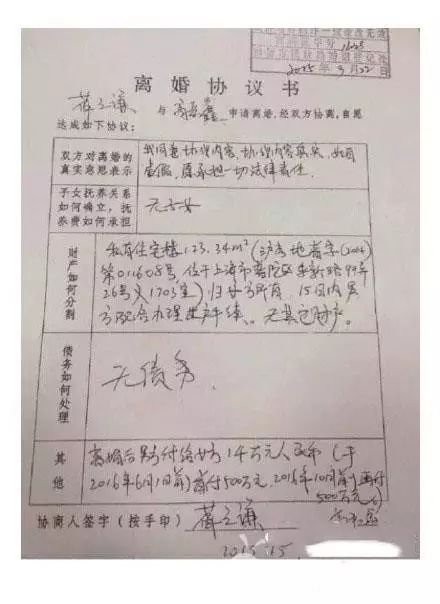 2015年9月22
离婚协议书
薛之谦 与 高磊鑫 申请离婚，经双方协商，自愿
达成如下协议：
双方对离婚的
真实意思表示
我同意协议内容，协议内容真实，如有
虚假，愿承担一切法律责任。
子女抚养关系
如何确立，抚
养费如何承担
无子女
财产如何分割
私有住宅楼123.34m²（
第011608号，位于上海市普陀区 99弄
26号 1703室）归女方所有，15日内男
方配合办理 手续。无其它财产。
债务如何处理
无债务。
其他
离婚后男方付给女方1千万元人民币（于
2016年6月1日前）首付500万元，2016年10月前再付
500万元
协商人签字（按手印） 薛之谦
2015